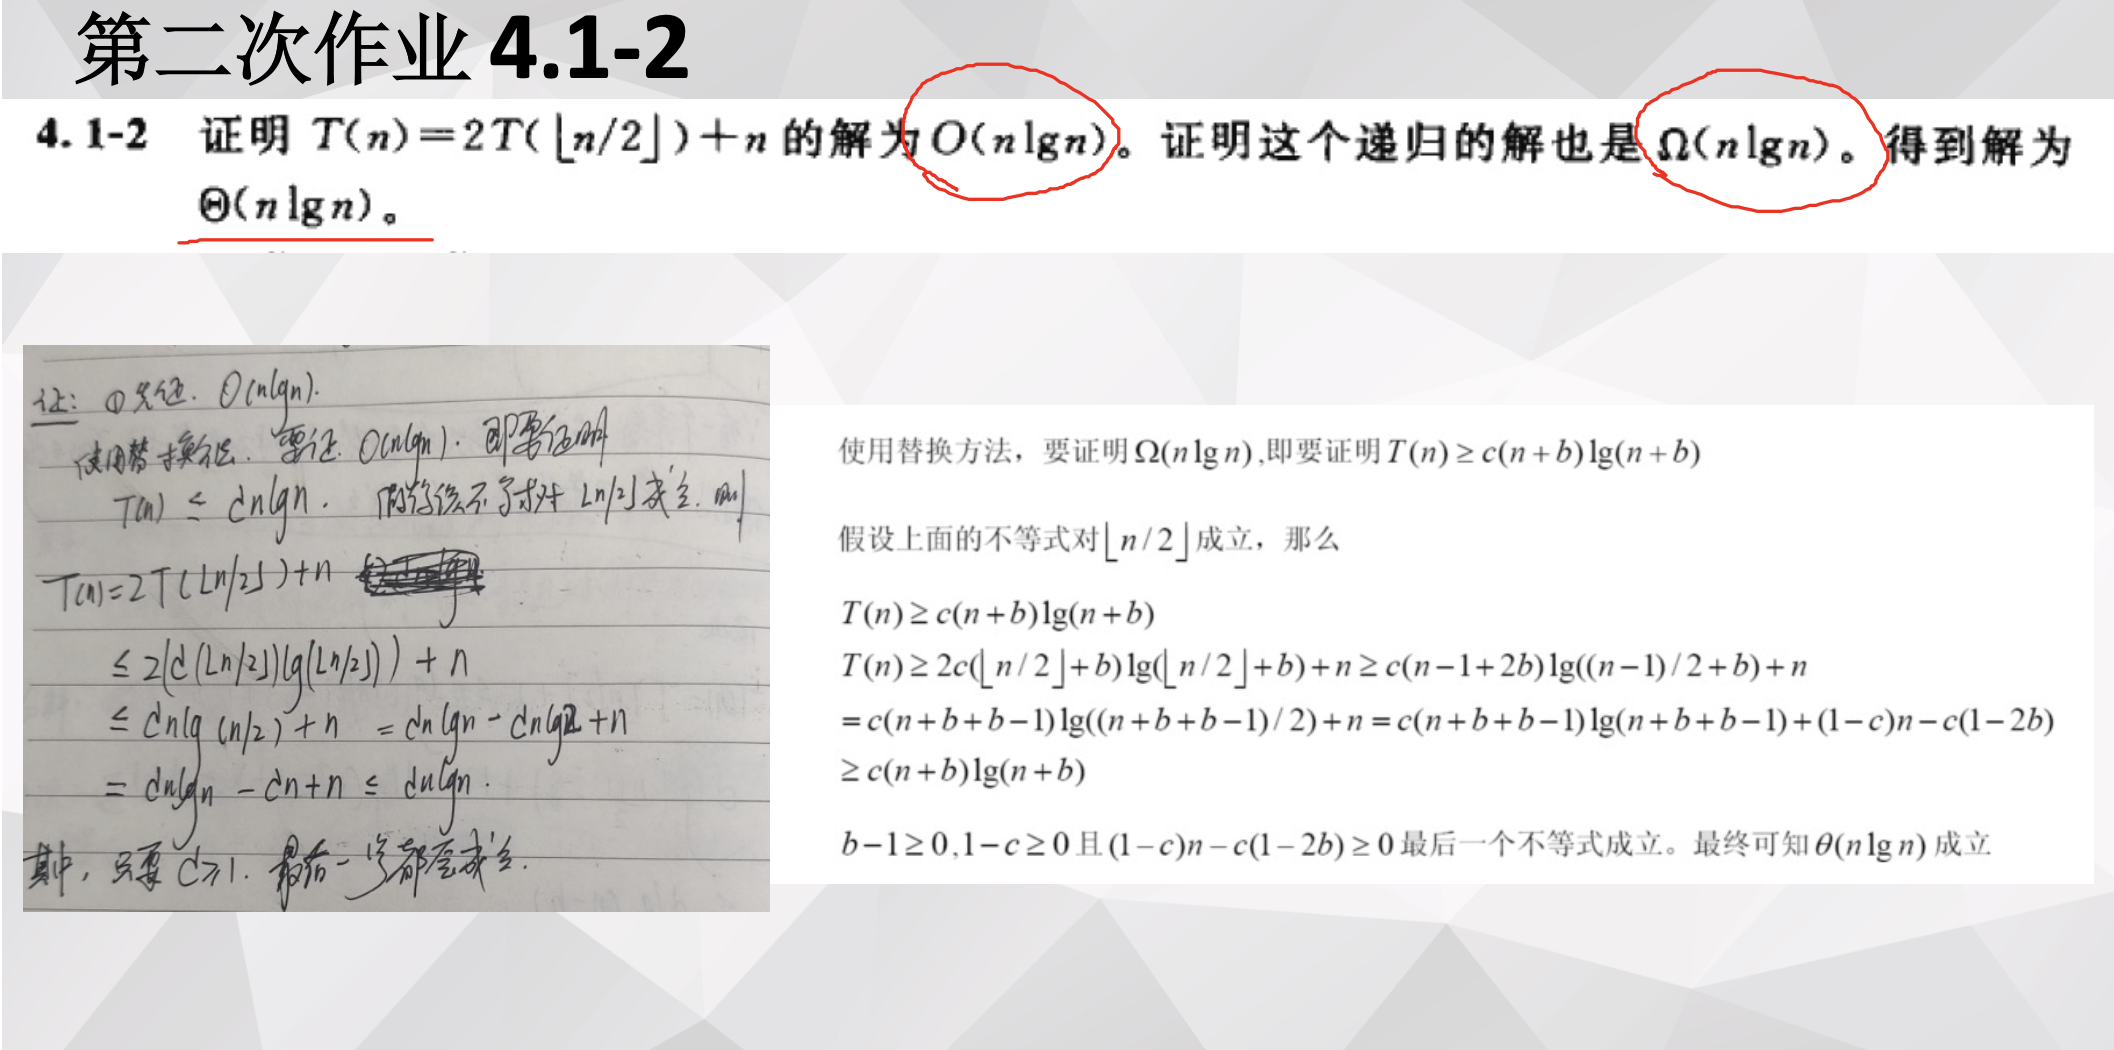 第二次作业 4.1-2
4.1-2 证明 T(n)=2T(⌊n/2⌋)+n 的解为 O(n lg n)。证明这个递归的解也是 Ω(n lg n)。得到解为
Θ(n lg n)。
证: ①先证. O(nlgn).
使用替换法. 要证 O(nlgn). 即要证明
T(n) ≤ cnlgn. 假设该不等式对 ⌊n/2⌋ 成立. 则
T(n)=2T(⌊n/2⌋)+n
≤ 2(c(⌊n/2⌋)lg(⌊n/2⌋)) + n
≤ cnlg(n/2)+n = cnlgn - cnlg2+n
= cnlgn - cn+n ≤ cnlgn.
其中, 只要 c≥1. 最后一步都会成立.
使用替换方法，要证明Ω(n lg n),即要证明T(n) ≥ c(n+b)lg(n+b)
假设上面的不等式对⌊n/2⌋成立，那么
T(n) ≥ c(n+b)lg(n+b)
T(n) ≥ 2c(⌊n/2⌋+b)lg(⌊n/2⌋+b)+n ≥ c(n-1+2b)lg((n-1)/2+b)+n
= c(n+b+b-1)lg((n+b+b-1)/2)+n = c(n+b+b-1)lg(n+b+b-1)+(1-c)n-c(1-2b)
≥ c(n+b)lg(n+b)
b-1≥0,1-c≥0且(1-c)n-c(1-2b)≥0最后一个不等式成立。最终可知θ(n lg n)成立